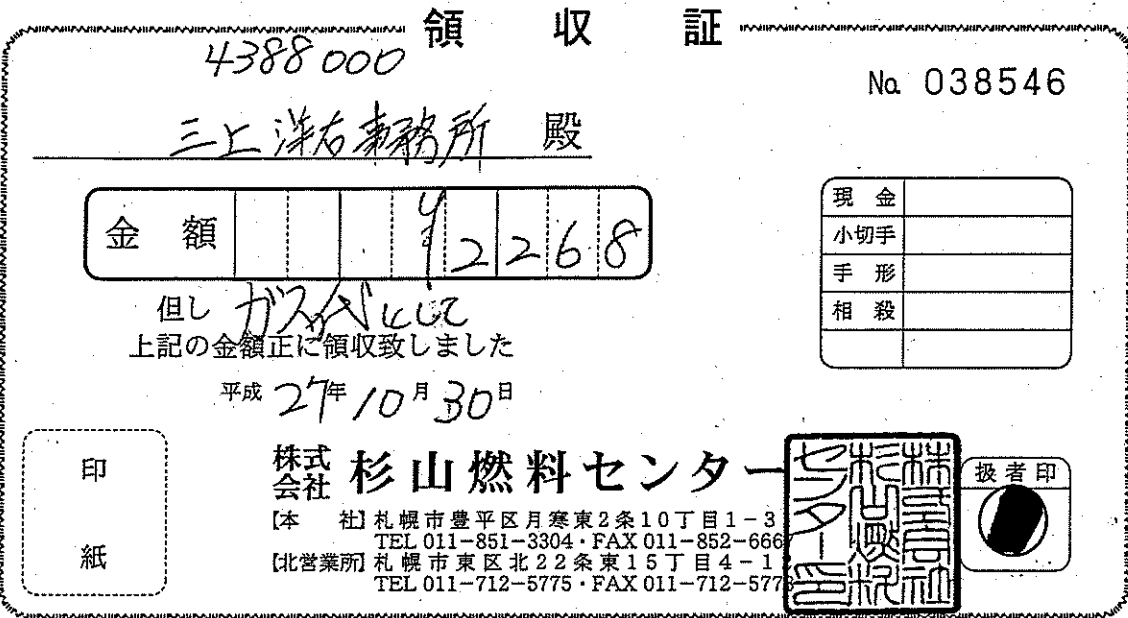 領収証
4388000
No. 038546
三上洋右事務所 殿
金額 ¥2268
現金
小切手
手形
相殺
但し ガス代として
上記の金額正に領収致しました
平成27年10月30日
印紙
株式会社 杉山燃料センター
株式会社杉山燃料センター印
扱者印
【本 社】札幌市豊平区月寒東2条10丁目1-3
TEL 011-851-3304・FAX 011-852-666
【北営業所】札幌市東区北22条東15丁目4-1
TEL 011-712-5775・FAX 011-712-577